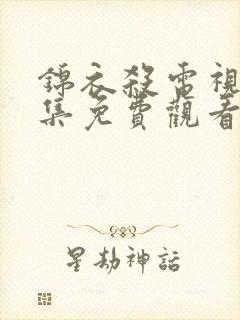 錦衣殺電視
集免費觀看
星劫神話